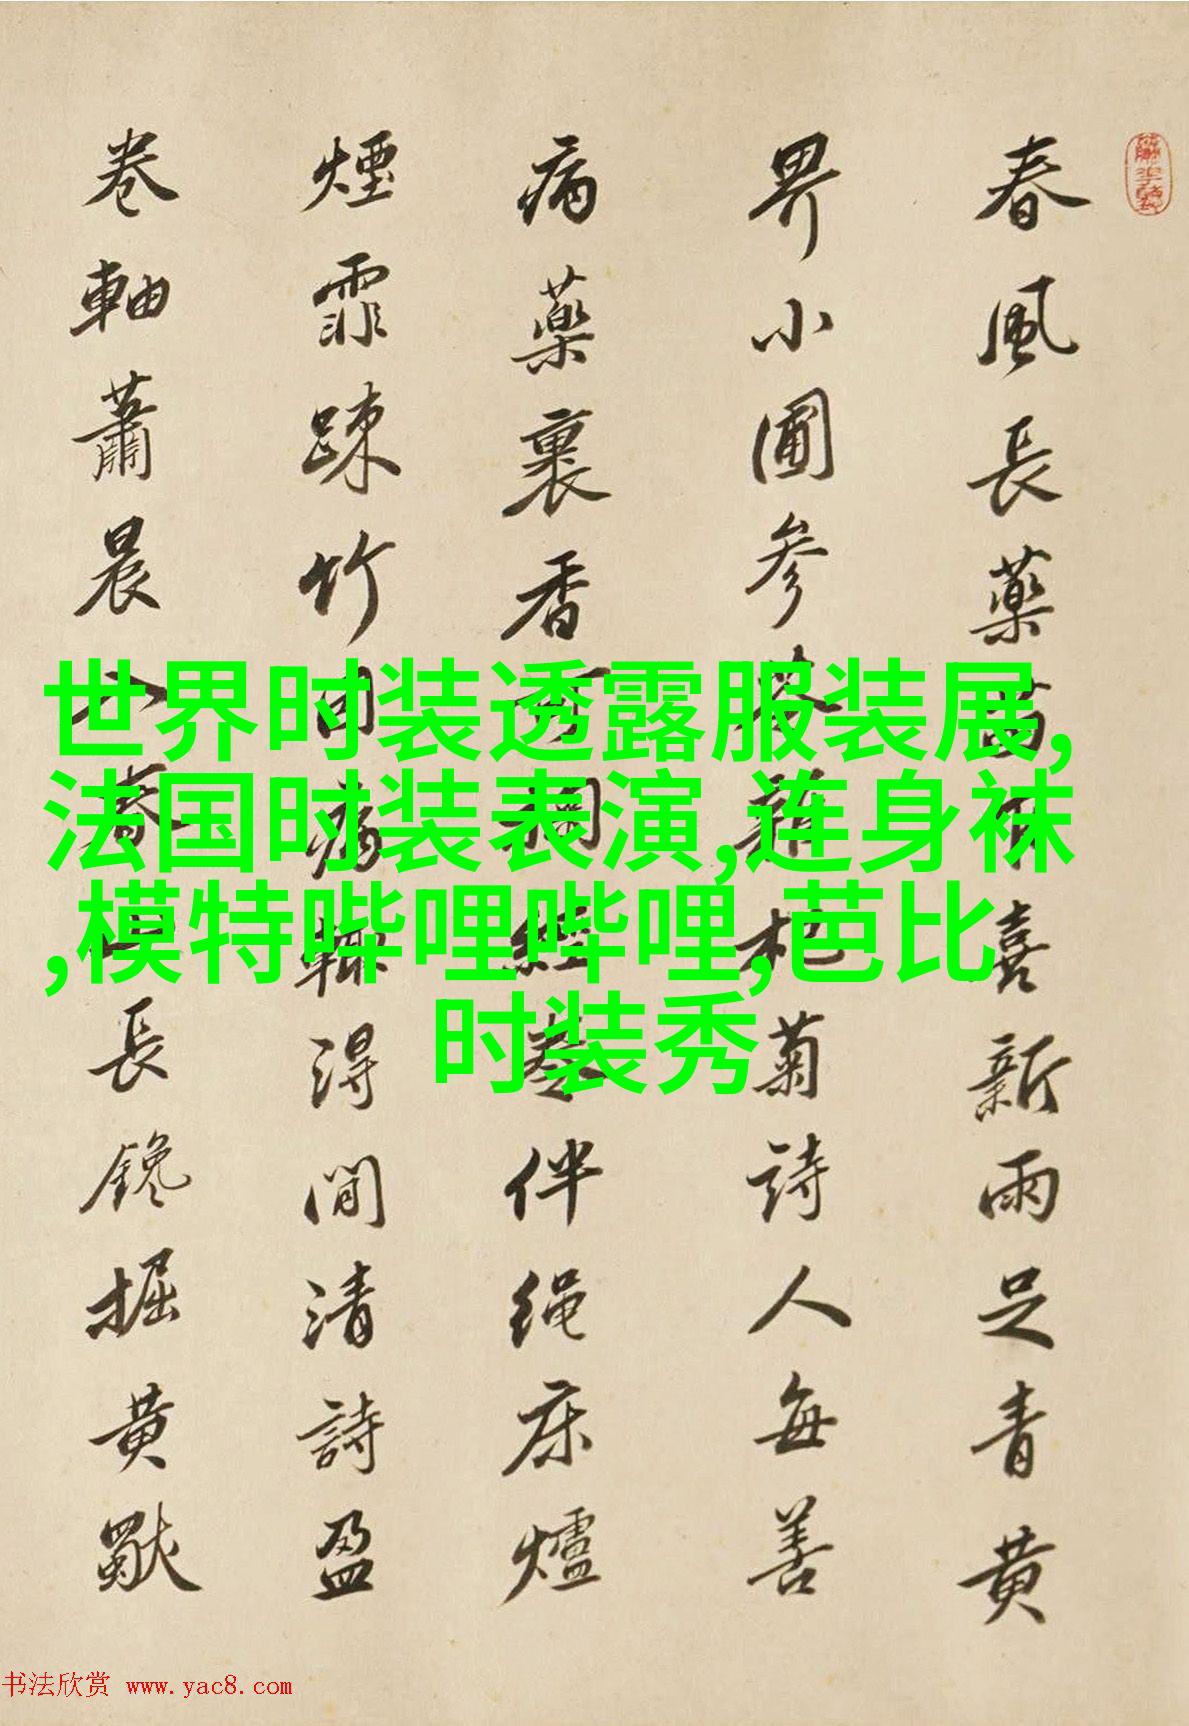 春風長藥苗喜新雨足青黃
界小圃參苓雜杞菊詩人每善
病藥裹香經卷伴繩床爐
煙霏踈竹因病輒得閒清詩盈
卷軸蕭晨長鑱掘黃獨
世界时装透露服装展,
法国时装表演,连身袜
,模特哔哩哔哩,芭比
时装秀
书法欣赏 www.yac8.com